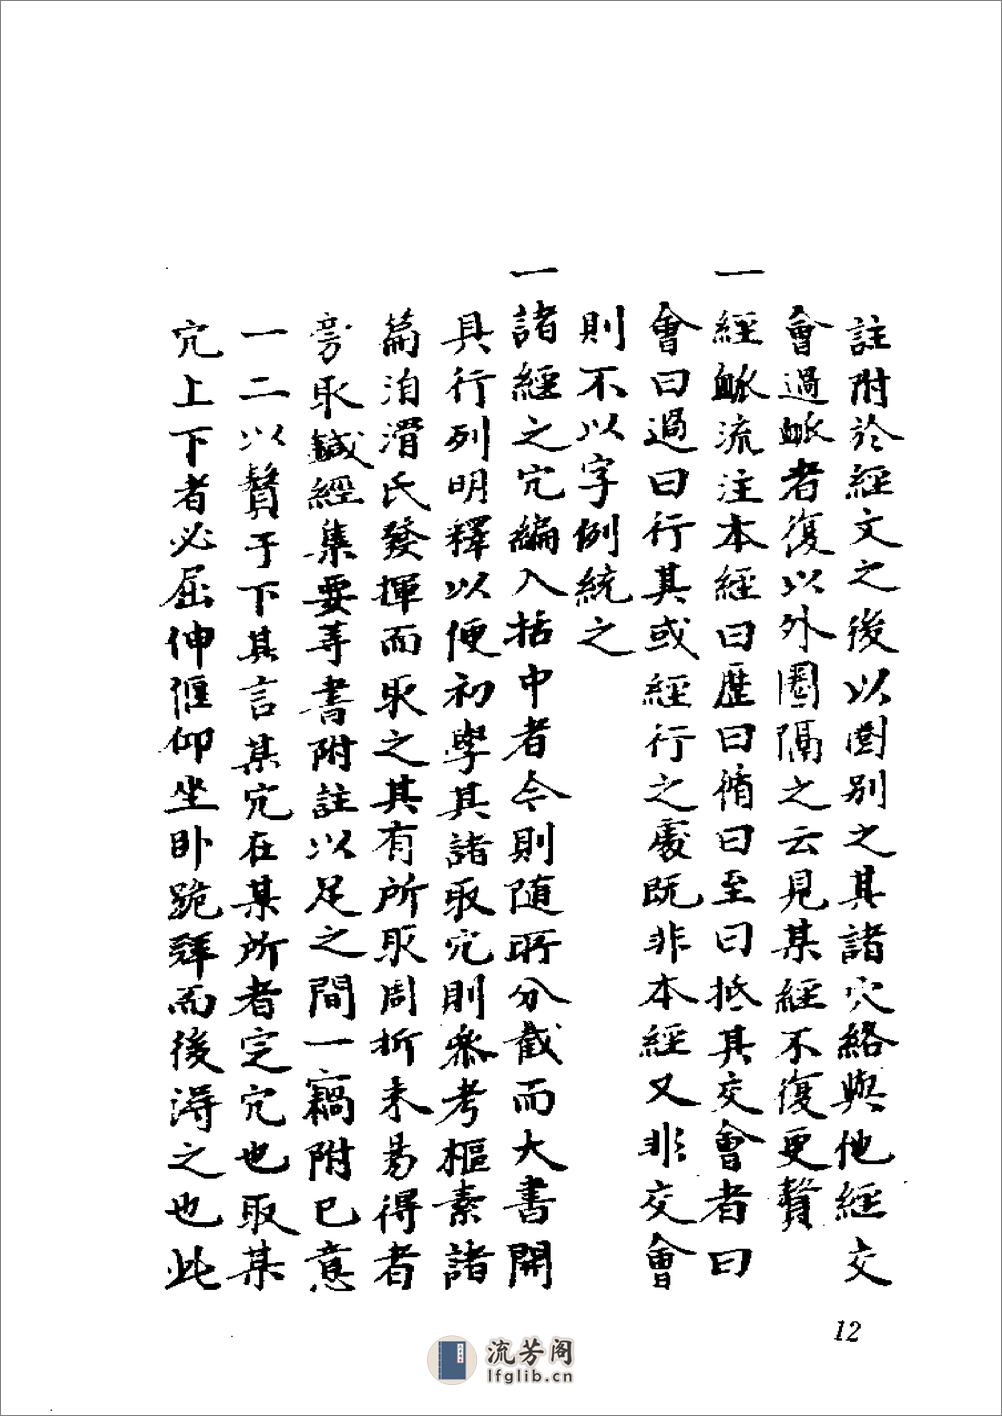 註附於經文之後以圈别之其諸穴絡與他經交
會過脉者復以外圈隔之云見某經不復更贅
一經脉流注本經曰歷曰循曰至曰抵其交會者曰
會曰過曰行其或經行之處既非本經又非交會
則不以字例統之
一諸經之穴編入括中者今則随所分截而大書開
具行列明釋以便初學其諸取穴則叅考樞素諸
篇洎滑氏發揮而取之其有所取周折未易得者
旁取鍼經集要等書附註以足之間一竊附已意
一二以贅于下其言某穴在某所者定穴也取某
穴上下者必屈伸偃仰坐卧跪拜而後得之也此
12
流芳阁
lfglib.cn